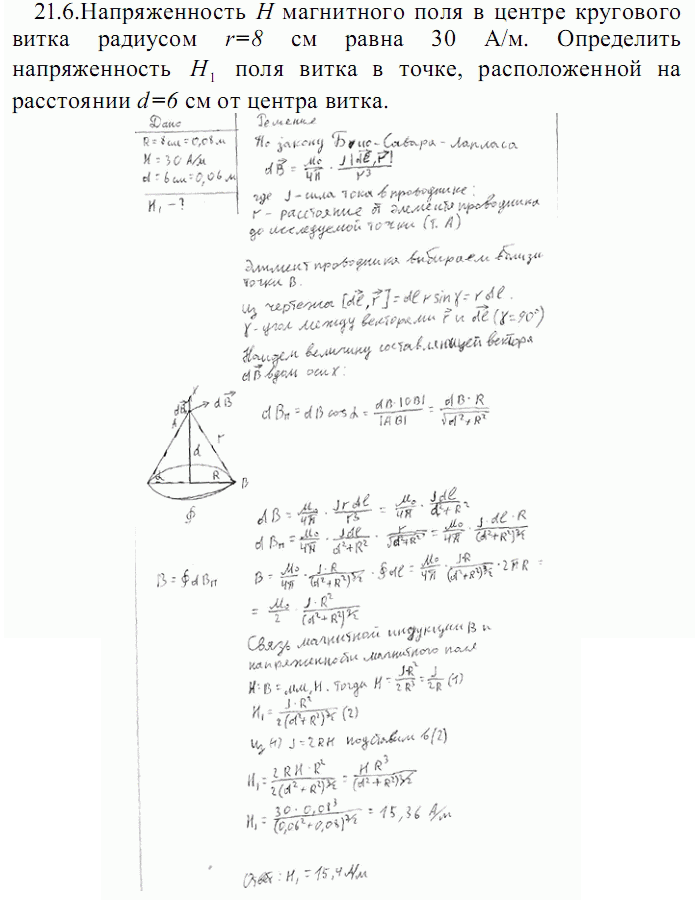 21.6.Напряженность H магнитного поля в центре кругового
витка радиусом r=8 см равна 30 А/м. Определить
напряженность H₁ поля витка в точке, расположенной на
расстоянии d=6 см от центра витка.
Дано
R = 8 см = 0,08 м
H = 30 А/м
d = 6 см = 0,06 м
H₁ - ?
Решение
По закону Био-Савара-Лапласа
dB⃗ = μ₀/4π · J[dl⃗, r⃗]/r³
где J - сила тока в проводнике;
r - расстояние от элемента проводника
до исследуемой точки (т. А)
Элемент проводника выбираем вблизи
точки B.
Из чертежа [dl⃗, r⃗] = dl r sin γ = r dl.
γ - угол между векторами r⃗ и dl⃗ (γ = 90°)
Найдем величину составляющей вектора
dB⃗ вдоль оси x:
dBп = dB cos α = dB·|OB|/|AB| = dB·R/√(d²+R²)
dB⃗
A
r
d
α
R
B
∮
dB = μ₀/4π · J r dl/r³ = μ₀/4π · J dl/(d²+R²)
dBп = μ₀/4π · J dl/(d²+R²) · r/√(d²+R²) = μ₀/4π · J·dl·R/(d²+R²)^3/2
B = ∮dBп
B = μ₀/4π · J·R/(d²+R²)^3/2 · ∮dl = μ₀/4π · J·R/(d²+R²)^3/2 · 2πR =
= μ₀/2 · J·R²/(d²+R²)^3/2
Связь магнитной индукции B и
напряженности магнитного поля
H: B = μμ₀H. Тогда H = JR²/2R³ = J/2R (1)
H₁ = J·R²/2(d²+R²)^3/2 (2)
Из (1) J = 2RH подставим в (2)
H₁ = 2RH·R²/2(d²+R²)^3/2 = HR³/(d²+R²)^3/2
H₁ = 30·0,08³/(0,06²+0,08)^3/2 = 15,36 А/м
Ответ: H₁ = 15,4 А/м